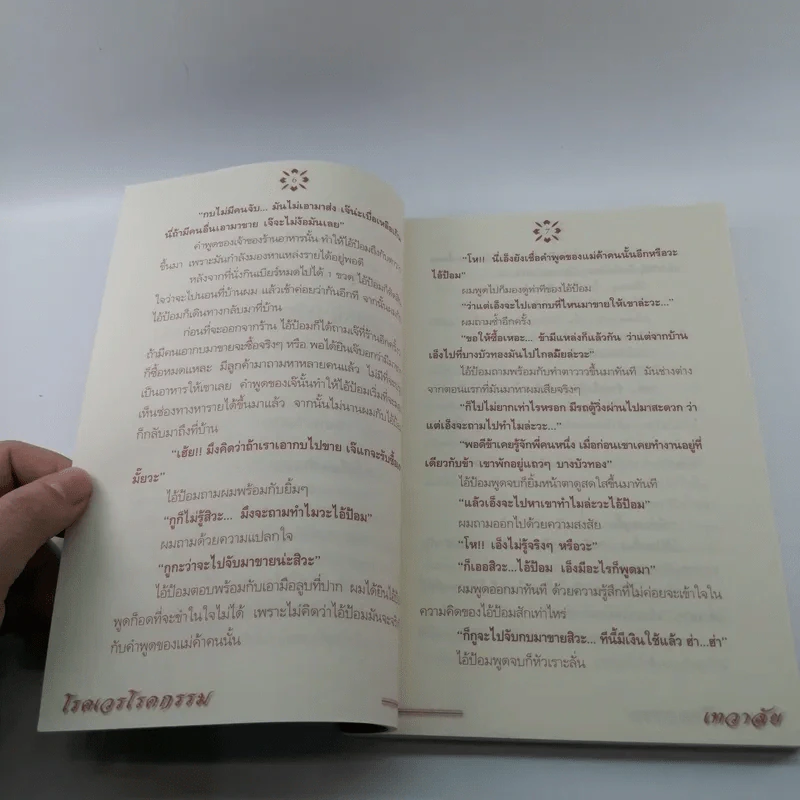 6
"กบไม่มีคนจับ... มันไม่เอามาส่ง เจ๊น่ะเบื่อเหลือเกิน
นี่ถ้ามีคนอื่นเอามาขาย เจ๊จะไม่ง้อมันเลย"
คำพูดของเจ้าของร้านอาหารนั้น ทำให้ไอ้ป้อมถึงกับ
ขึ้นมา เพราะมันกำลังมองหาแหล่งรายได้อยู่พอดี
หลังจากที่นั่งกินเบียร์หมดไปได้ 1 ขวด ไอ้ป้อมก็
ใจว่าจะไปนอนที่บ้านผม แล้วเช้าค่อยว่ากันอีกที จากนั้น
ไอ้ป้อมก็เดินทางกลับมาที่บ้าน
ก่อนที่จะออกจากร้าน ไอ้ป้อมก็ได้ถามเจ๊ที่ร้านอีกครั้ง
ถ้ามีคนเอากบมาขายจะซื้อจริงๆ หรือ พอได้ยินเจ๊บอกว่ามี
ก็ซื้อหมดแหละ มีลูกค้ามาถามหาหลายคนแล้ว ไม่มี
เป็นอาหารให้เขาเลย คำพูดของเจ๊นั้นทำให้ไอ้ป้อมเริ่ม
เห็นช่องทางหารายได้ขึ้นมาแล้ว จากนั้นไม่นานผมกับไอ้ป้อม
ก็กลับมาถึงที่บ้าน
"เฮ้ย!! มึงคิดว่าถ้าเราเอากบไปขาย เจ๊แกจะรับซื้อ
มั้ยวะ"
ไอ้ป้อมถามผมพร้อมกับยิ้มๆ
"กูก็ไม่รู้สิวะ... มึงจะถามทำไมวะไอ้ป้อม"
ผมถามด้วยความแปลกใจ
"กูกะว่าจะไปจับมาขายน่ะสิวะ"
ไอ้ป้อมตอบพร้อมกับเอามือลูบที่ปาก ผมได้ยิน
พูดก็อดที่จะขำในใจไม่ได้ เพราะไม่คิดว่าไอ้ป้อมมันจะ
กับคำพูดของแม่ค้าคนนั้น
โรคเวรโรคกรรม
7
"โห!! นี่เอ็งยังเชื่อคำพูดของแม่ค้าคนนั้นอีกหรือวะ
ไอ้ป้อม"
ผมพูดไปก็มองดูท่าทีของไอ้ป้อม
"ว่าแต่เอ็งจะไปเอากบที่ไหนมาขายให้เขาล่ะวะ..."
ผมถามซ้ำอีกครั้ง
"ขอให้ซื้อเหอะ... ข้ามีแหล่งก็แล้วกัน ว่าแต่จากบ้าน
เอ็งไปที่บางบัวทองมันไปไกลมั้ยล่ะวะ"
ไอ้ป้อมถามพร้อมกับทำตาวาวขึ้นมาทันที มันช่างต่าง
จากตอนแรกที่มันมาหาผมเสียจริงๆ
"ก็ไปไม่ยากเท่าไรหรอก มีรถตู้วิ่งผ่านไปมาสะดวก ว่า
แต่เอ็งจะถามไปทำไมล่ะวะ..."
"พอดีข้าเคยรู้จักพี่คนหนึ่ง เมื่อก่อนเขาเคยทำงานอยู่ที่
เดียวกับข้า เขาพักอยู่แถวๆ บางบัวทอง"
ไอ้ป้อมพูดจบก็ยิ้มหน้าตาดูสดใสขึ้นมาทันที
"แล้วเอ็งจะไปหาเขาทำไมล่ะวะไอ้ป้อม"
ผมถามออกไปด้วยความสงสัย
"โห!! เอ็งไม่รู้จริงๆ หรือวะ"
"ก็เออสิวะ...ไอ้ป้อม เอ็งมีอะไรก็พูดมา"
ผมพูดออกมาทันที ด้วยความรู้สึกที่ไม่ค่อยจะเข้าใจใน
ความคิดของไอ้ป้อมสักเท่าไหร่
"ก็กูจะไปจับกบมาขายสิวะ... ทีนี้มีเงินใช้แล้ว ฮ่า...ฮ่า"
ไอ้ป้อมพูดจบก็หัวเราะลั่น
เทวาลัย